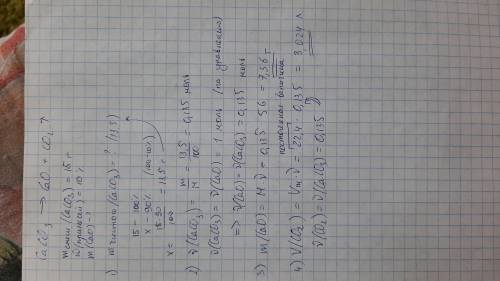 CaCO₃ → CaO + CO₂ ↑
m смеси (CaCO₃) = 15 г
ω (примеси) = 10 %
m (CaO) - ?
1) m чистого (CaCO₃) = ? (13,5)
15 - 100%
x - 90% (100-10%)
x = 15·90 / 100 = 13,5 г
2) ν (CaCO₃) = m / M = 13,5 / 100 = 0,135 моль
ν (CaCO₃) = ν (CaO) = 1 моль (по уравнению)
=> ν (CaO) = ν (CaCO₃) = 0,135 моль
3) m (CaO) = M · ν = 0,135 · 56 = 7,56 г
постоянная величина
4) V (CO₂) = Vm · ν = 22,4 · 0,135 = 3,024 л
ν (CO₂) = ν (CaCO₃) = 0,135